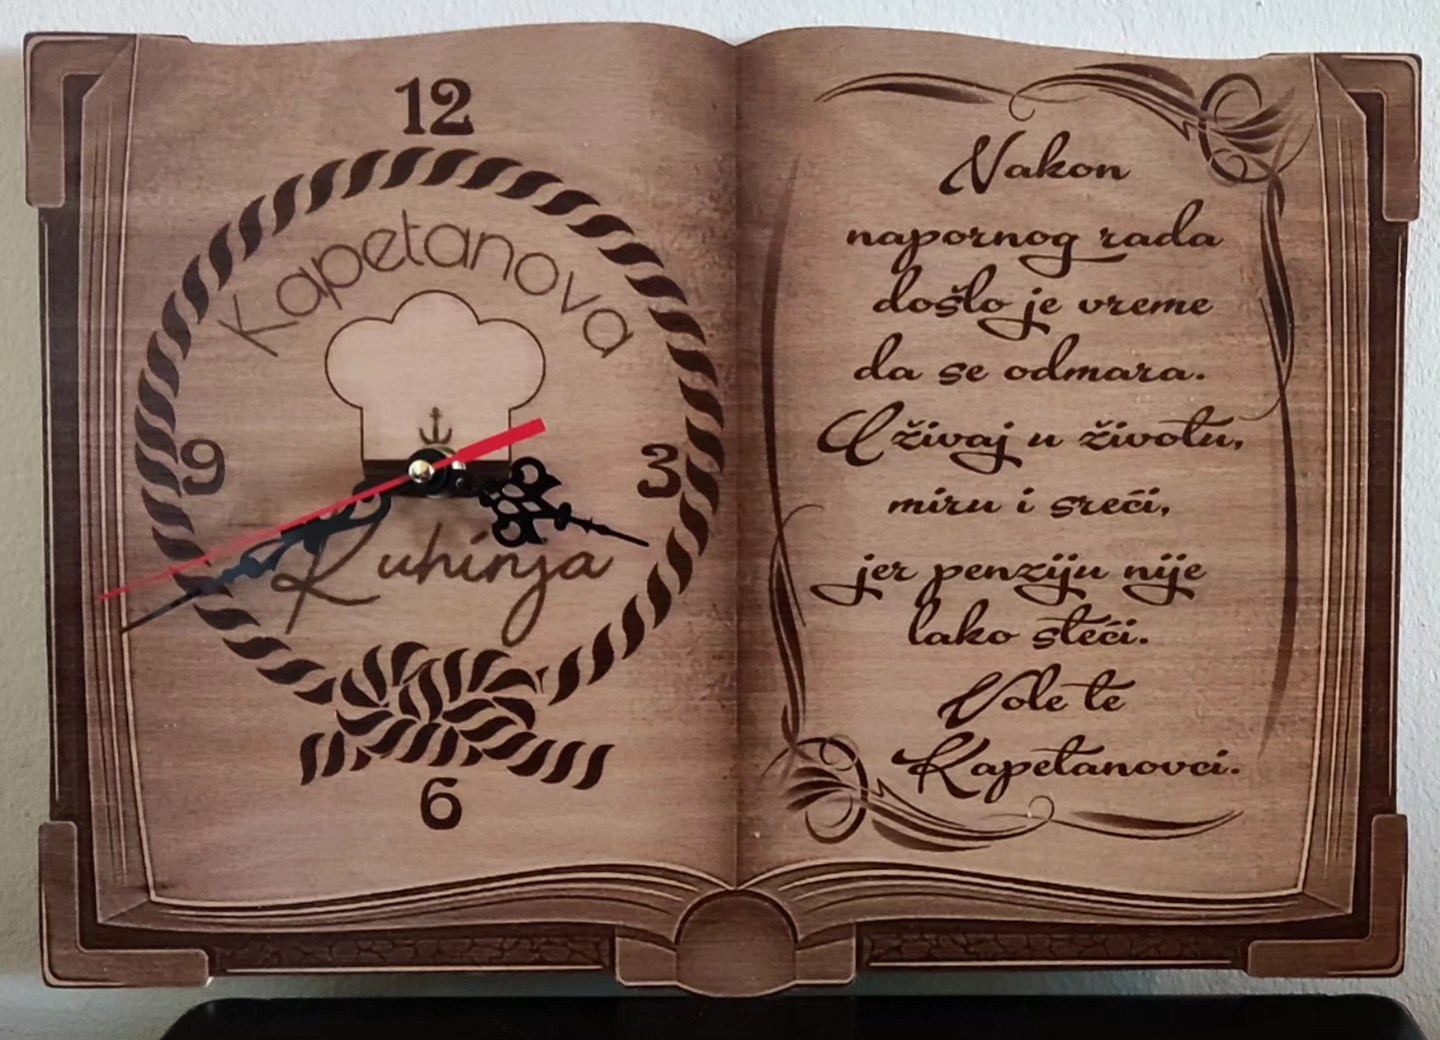 12
Kapetanova
9
3
Kuhinja
6
Nakon
napornog rada
došlo je vreme
da se odmara.
Uživaj u životu,
miru i sreći,
jer penziju nije
lako steći.
Vole te
Kapetanovci.